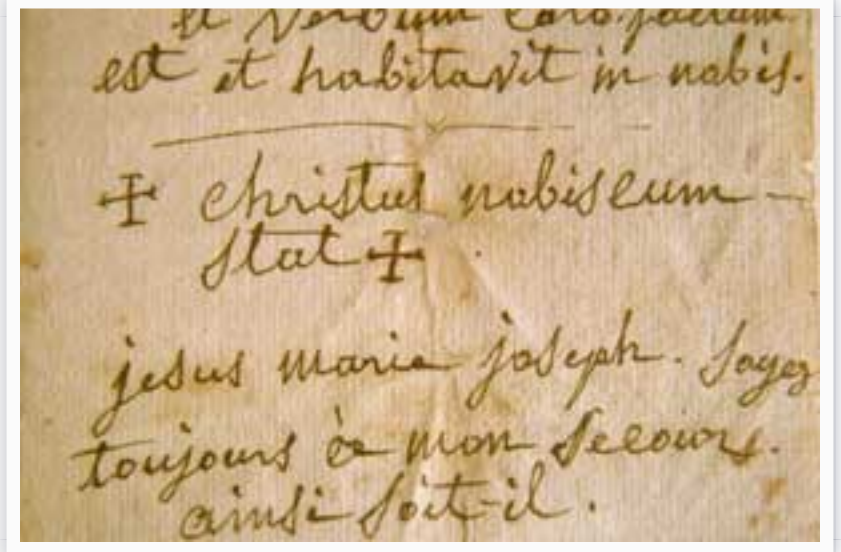 et Verbum caro factum
est et habitavit in nobis.
✠ christus nobiscum
stat ✠
jesus marie joseph. Soyez
toujours à mon Secours.
ainsi soit-il.